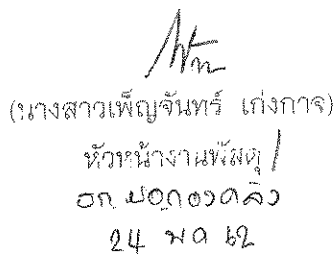 (นางสาวเพ็ญจันทร์ เก่งกาจ)
หัวหน้างานพัสดุ/
ผอกองคลัง
24 พค 62